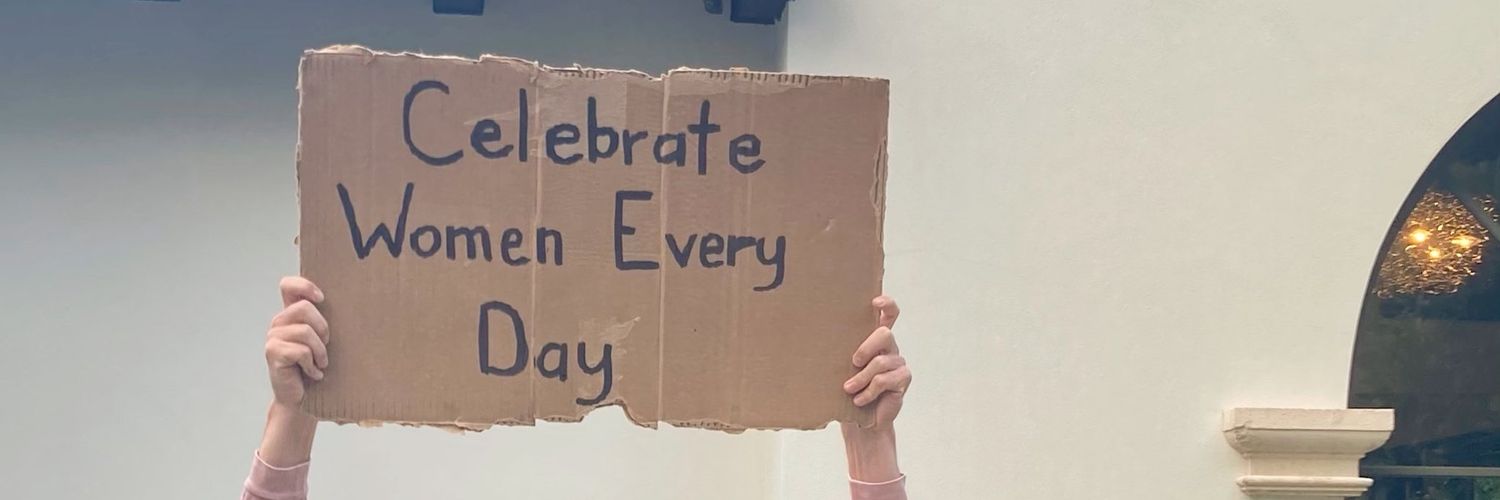 Celebrate
Women Every
Day